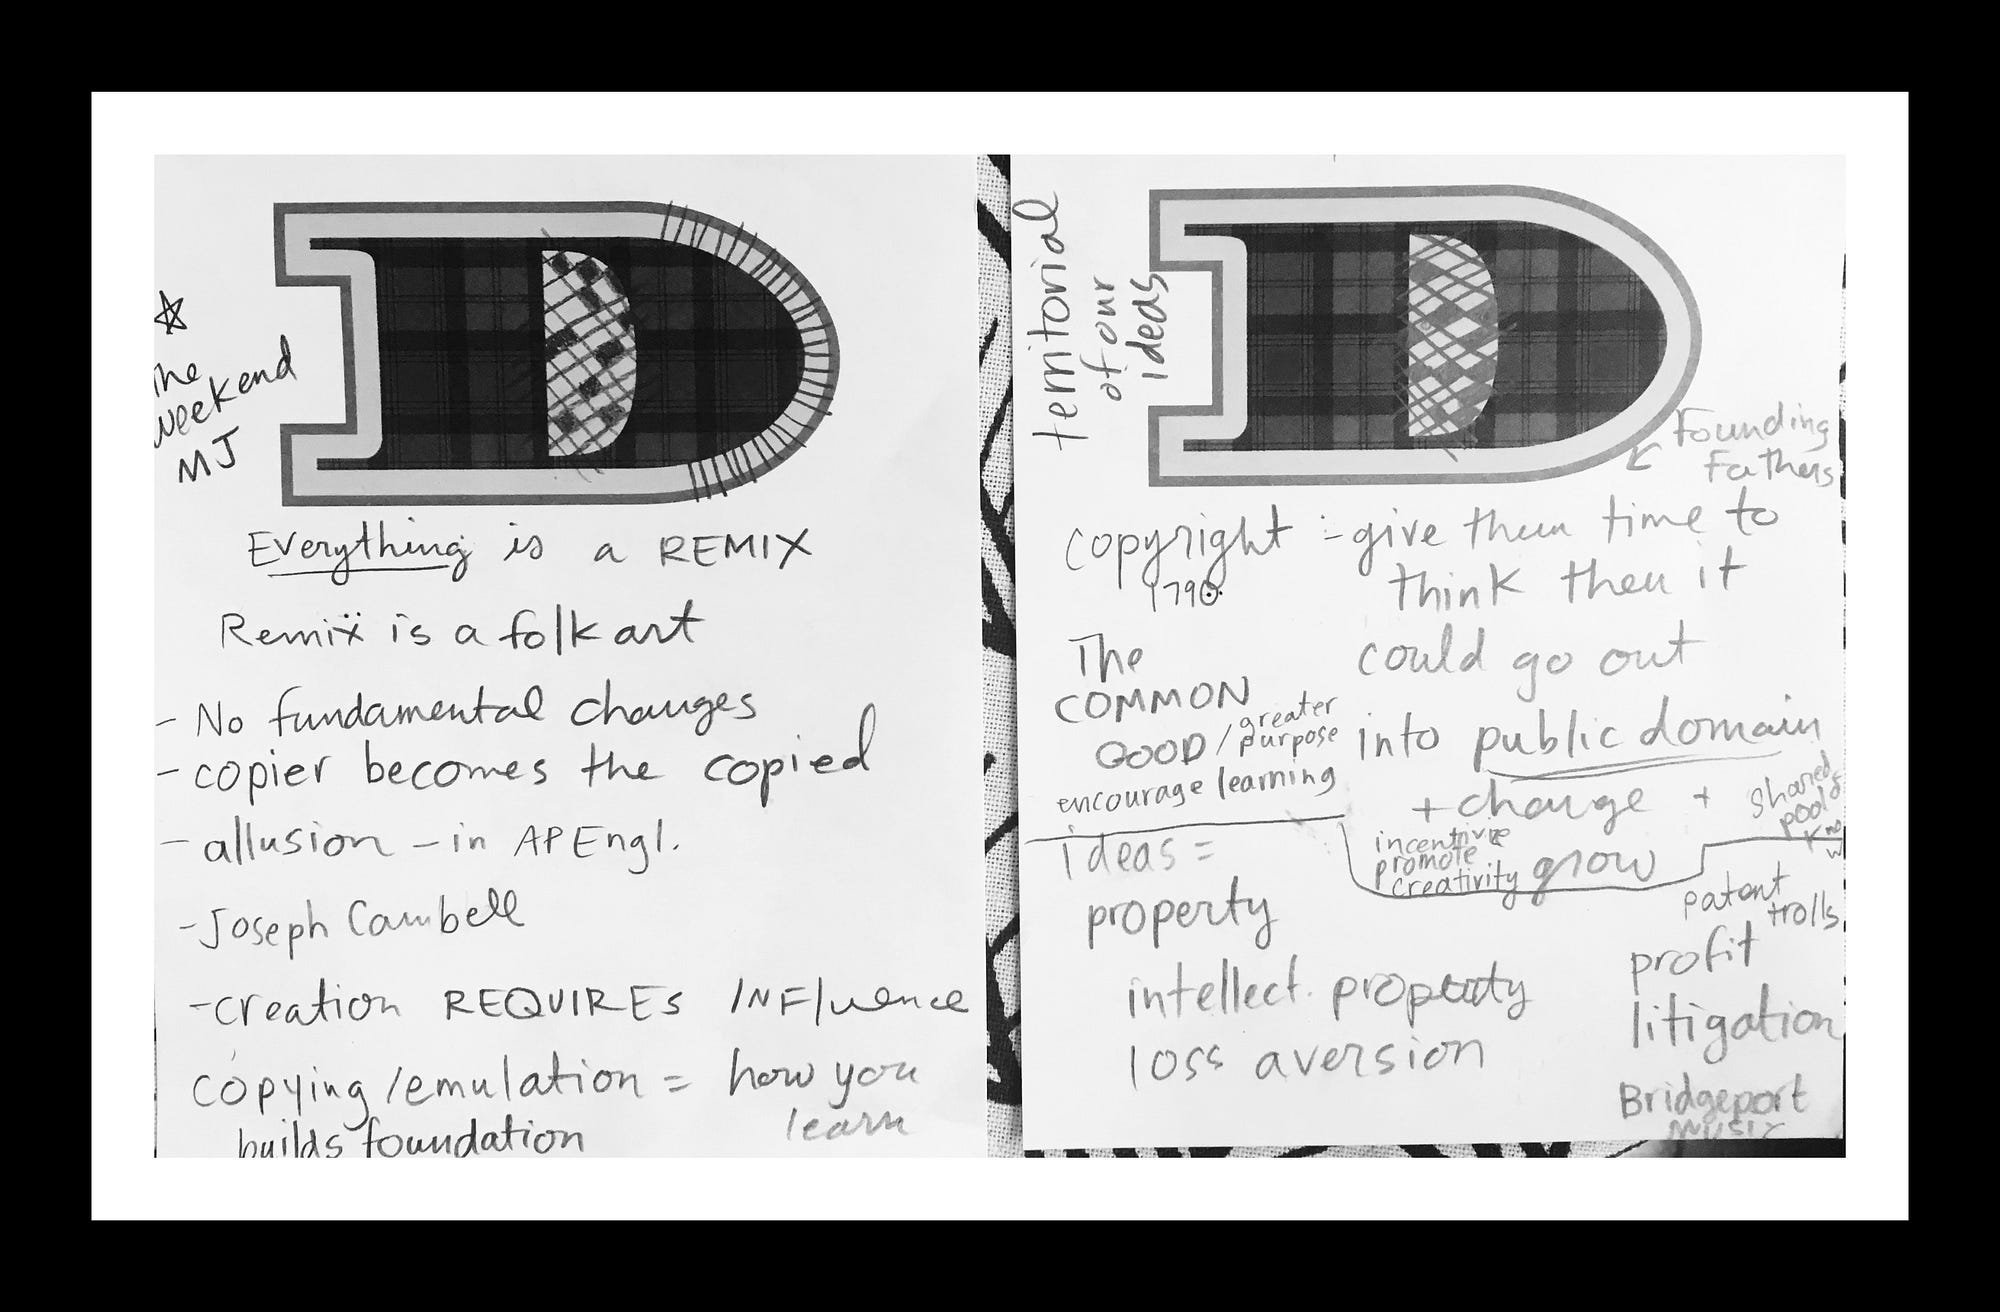 ☆
The
weekend
MJ
Everything is a REMIX
Remix is a folk art
- No fundamental changes
- copier becomes the copied
- allusion - in AP Engl.
- Joseph Cambell
- creation REQUIRES INFluence
copying/emulation = how you
learn
builds foundation
territorial
of our
ideas
Founding
Fathers
copyright :- give them time to
1790
think then it
could go out
into public domain
The
COMMON
GOOD / greater
purpose
encourage learning
+ change +
shared
pool of
know
incentivize
promote
creativity
grow
ideas =
property
intellect. property
loss aversion
patent
trolls
profit
litigation
Bridgeport
Music